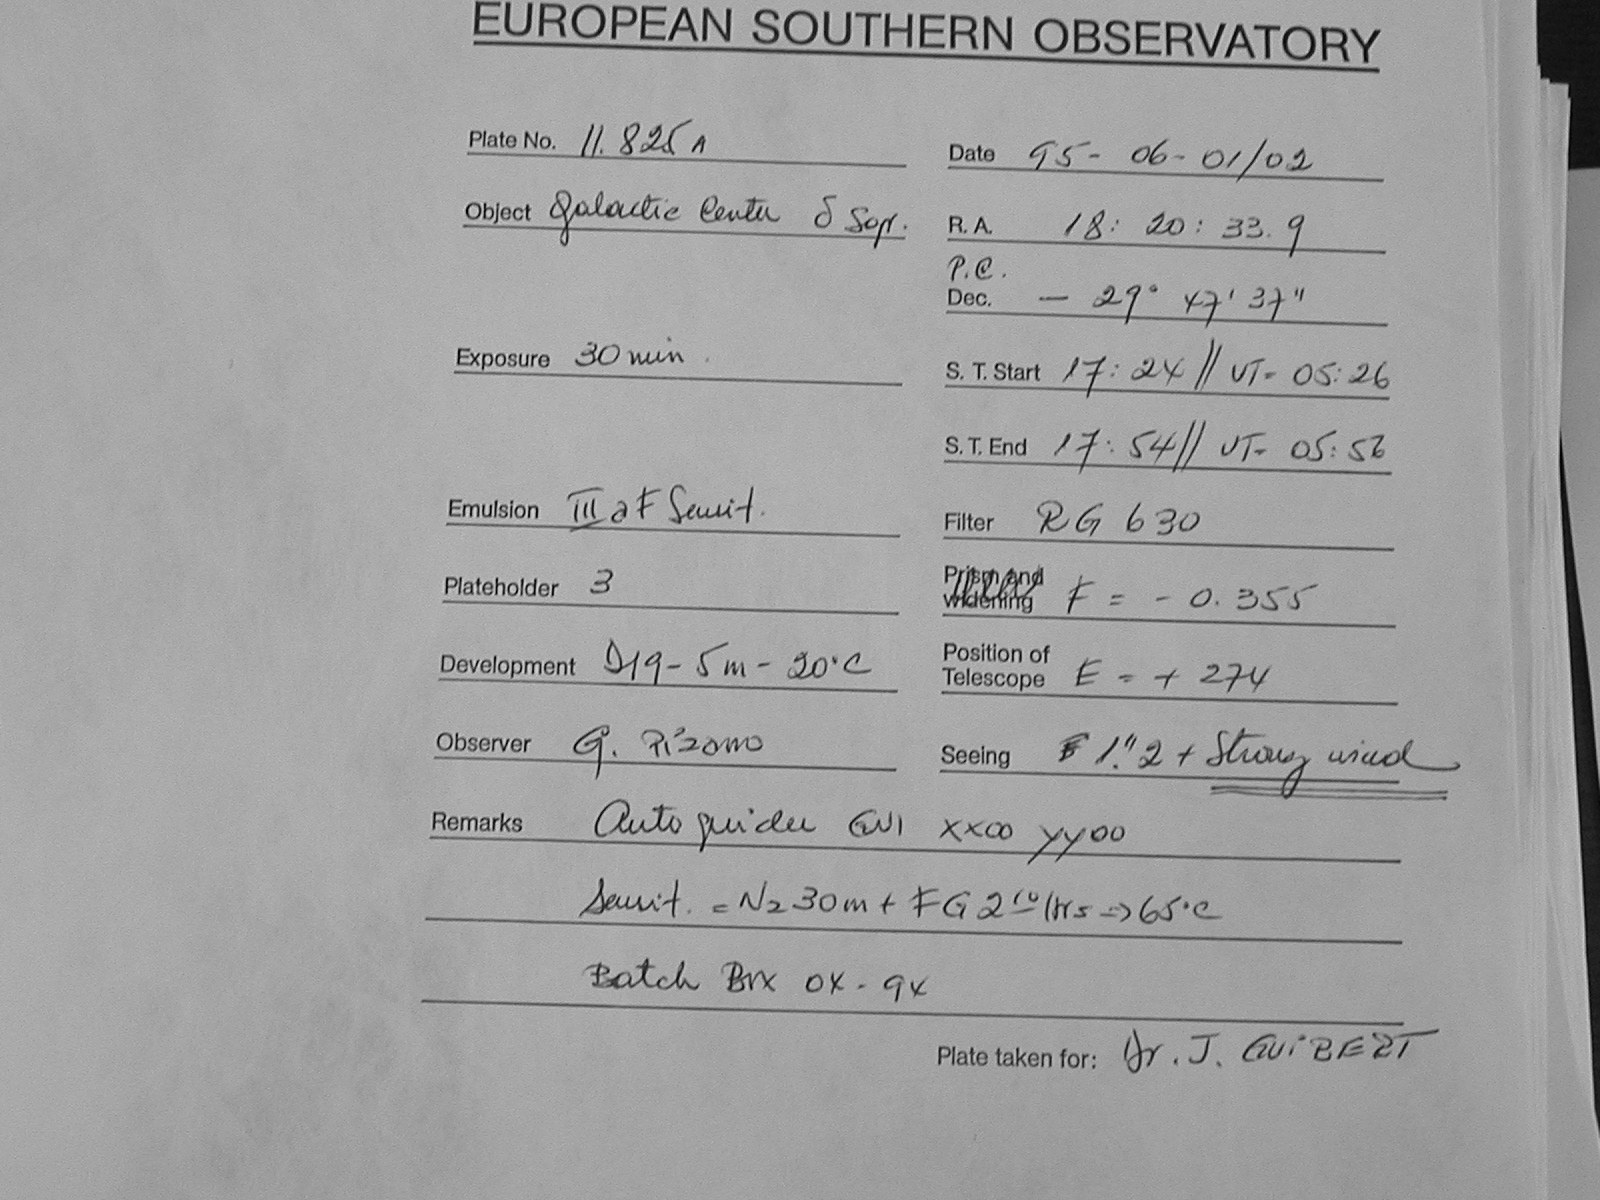 EUROPEAN SOUTHERN OBSERVATORY
Plate No. 11.825A
Date 95-06-01/02
Object Galactic Center δ Sgr.
R. A. 18: 20: 33.9
P.C.
Dec. - 29° 47' 37"
Exposure 30 min.
S. T. Start 17:24 // UT- 05:26
S. T. End 17:54 // UT- 05:56
Emulsion III a F Sensit.
Filter RG 630
Plateholder 3
Prism and widening F = - 0.355
Development D19 - 5m - 20°C
Position of Telescope E = + 274
Observer G. Pizarro
Seeing 1."2 + Strong wind
Remarks Autoguider GV1 XX00 YY00
Sensit. = N2 30m + FG 2 Hrs => 65°C
Batch Box 0X-9X
Plate taken for: Dr. J. GUIBERT